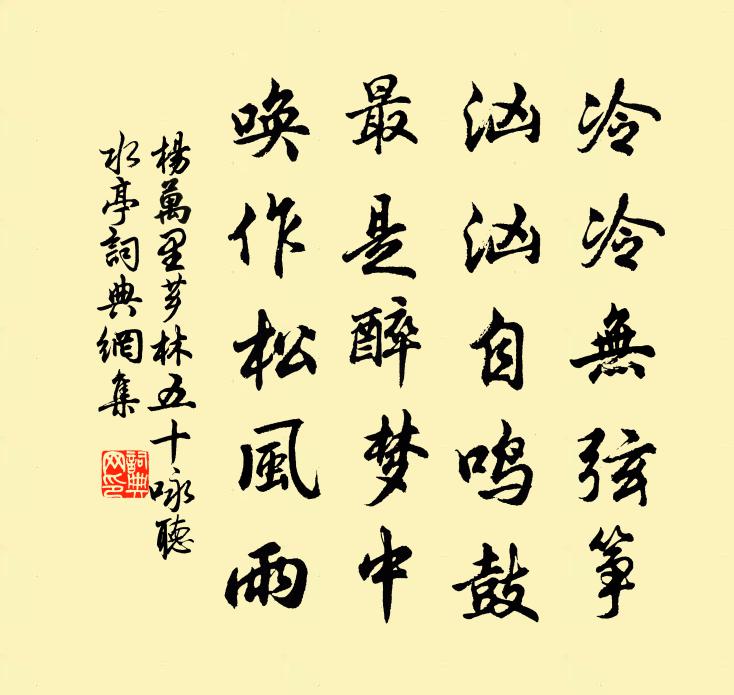 冷冷無弦筝
汹汹自鸣鼓
最是醉梦中
唤作松風雨
楊萬里芗林五十咏聽
水亭詞典網集
詞典网印